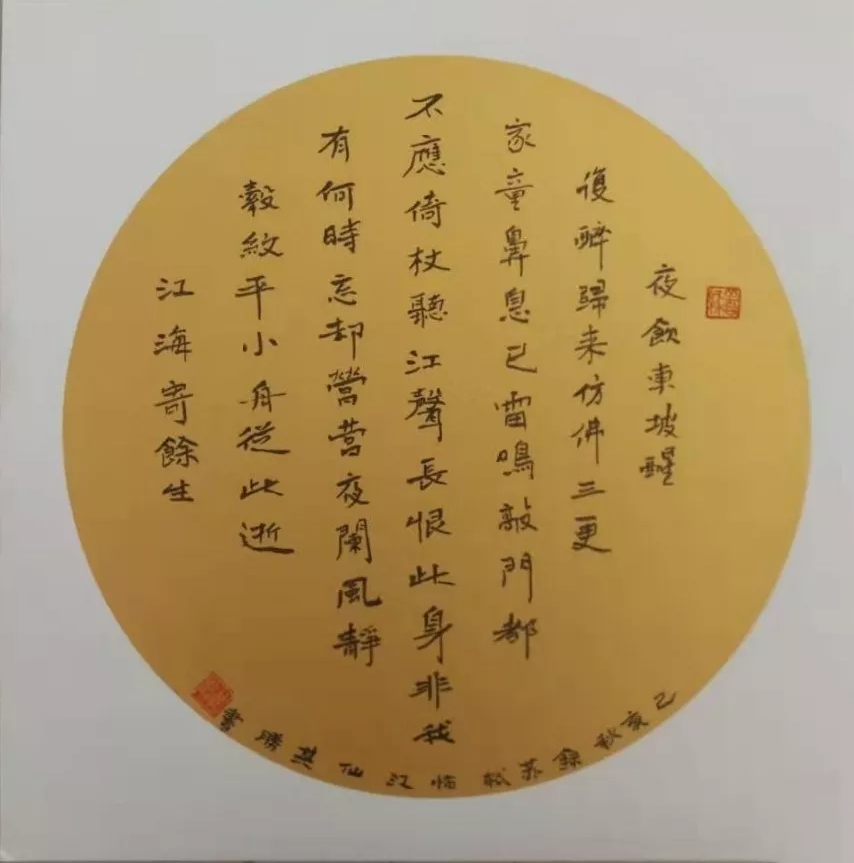 夜飲東坡醒
復醉歸来仿佛三更
家童鼻息已雷鳴敲門都
不應倚杖聽江聲長恨此身非我
有何時忘却營營夜闌風靜
縠紋平小舟從此逝
江海寄餘生
己亥秋錄苏軾临江仙其勝書